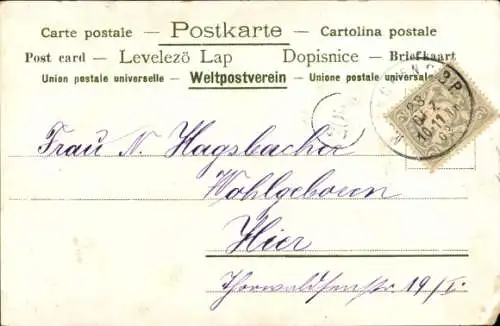 Carte postale — Postkarte — Cartolina postale
Post card — Levelező Lap Dopisnice — Briefkaart
Union postale universelle — Weltpostverein — Unione postale universale
Frau N. Hagsbacher
Wohlgeboren
Hier
Thorwaldsenstr 19/I.